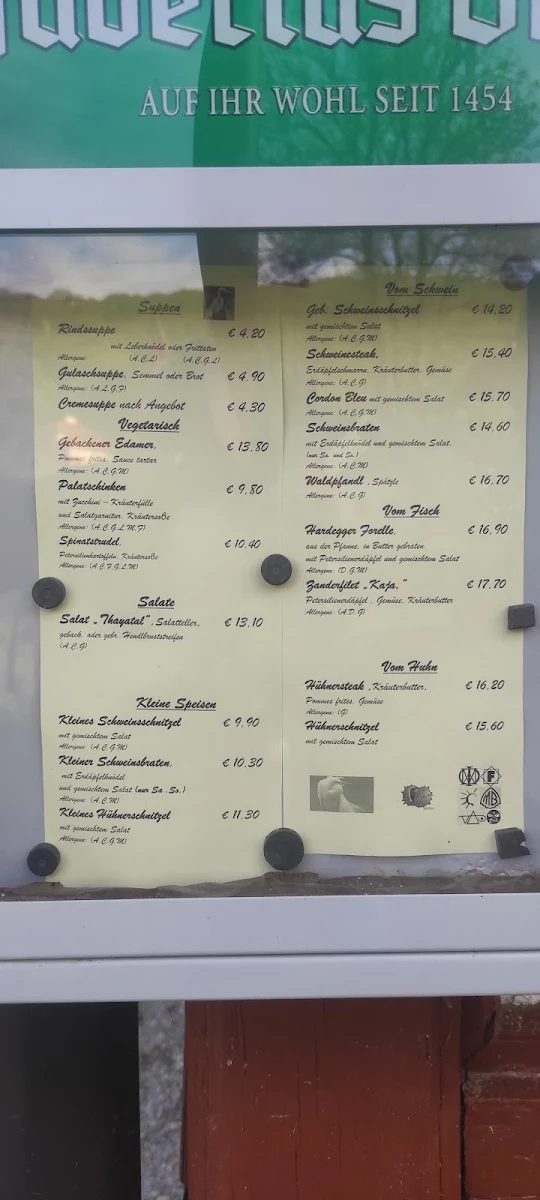 AUF IHR WOHL SEIT 1454
Suppen
Rindssuppe € 4,20
mit Leberknödel oder Frittaten
Allergene: (A,C,L) (A,C,G,L)
Gulaschsuppe, Semmel oder Brot € 4,90
Allergene: (A,L,G,F)
Cremesuppe nach Angebot € 4,30
Vegetarisch
Gebackener Edamer, € 13,80
Pommes frites, Sauce tartar
Allergene: (A,C,G,M)
Palatschinken € 9,80
mit Zucchini – Kräuterfülle
und Salatgarnitur, Kräutersoße
Allergene: (A,C,G,L,M,F)
Spinatstrudel, € 10,40
Petersilienkartoffeln, Kräutersoße
Allergene: (A,C,F,G,L,M)
Salate
Salat „Thayatal", Salatteller, € 13,10
geback. oder gebr. Hendlbruststreifen
(A,C,G)
Kleine Speisen
Kleines Schweinsschnitzel € 9,90
mit gemischtem Salat
Allergene: (A,C,G,M)
Kleiner Schweinsbraten, € 10,30
mit Erdäpfelknödel
und gemischtem Salat (nur Sa. ,So.)
Allergene: (A,C,M)
Kleines Hühnerschnitzel € 11,30
mit gemischtem Salat
Allergene: (A,C,G,M)
Vom Schwein
Geb. Schweinsschnitzel € 14,20
mit gemischtem Salat
Allergene: (A,C,G,M)
Schweinesteak, € 15,40
Erdäpfelschmarrn, Kräuterbutter, Gemüse
Allergene: (A,C,G)
Cordon Bleu mit gemischtem Salat € 15,70
Allergene: (A,C,G,M)
Schweinsbraten € 14,60
mit Erdäpfelknödel und gemischtem Salat,
(nur Sa. und So.)
Allergene: (A,C,M)
Waldpfandl , Spätzle € 16,70
Allergene: (A,C,G)
Vom Fisch
Hardegger Forelle, € 16,90
aus der Pfanne, in Butter gebraten
mit Petersilienerdäpfel und gemischtem Salat
Allergene: (D,G,M)
Zanderfilet „Kaja," € 17,70
Petersilienerdäpfel , Gemüse, Kräuterbutter
Allergene: (A,D,G)
Vom Huhn
Hühnersteak ,Kräuterbutter, € 16,20
Pommes frites, Gemüse
Allergene: (G)
Hühnerschnitzel € 15,60
mit gemischtem Salat